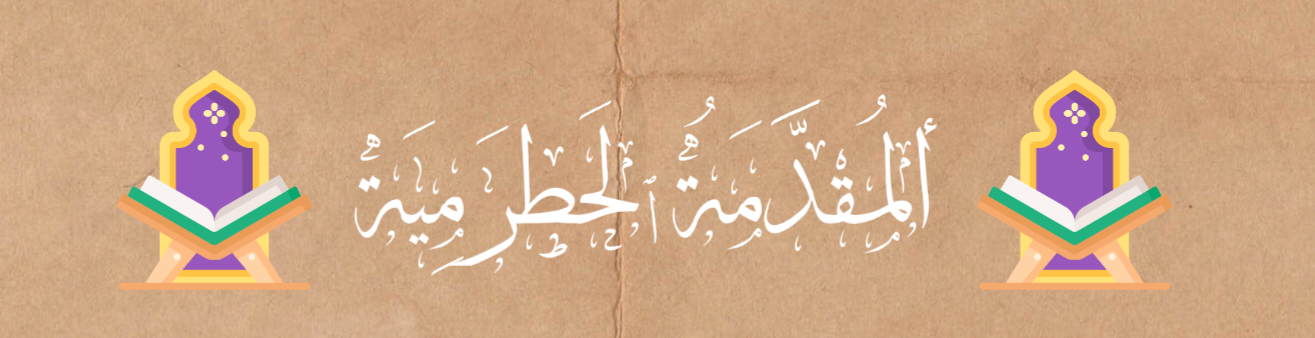 أَلْمُقَدَّمَةُ ٱلْحَطْرَمِيَةُ